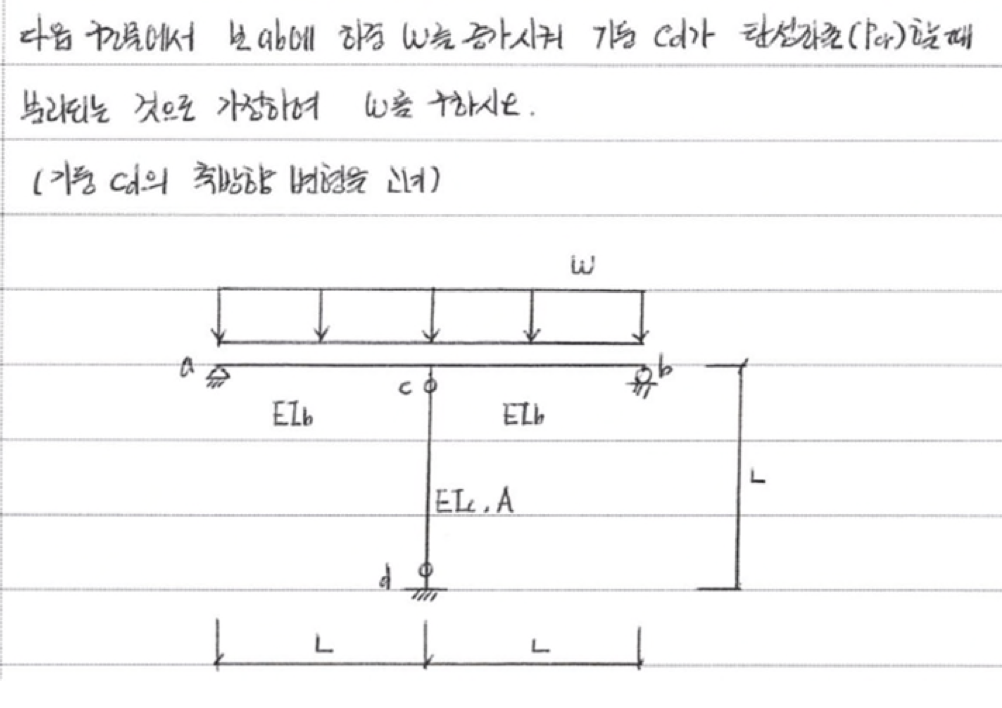 다음 구조물에서 보 ab에 하중 w를 증가시켜 기둥 cd가 탄성좌굴(Pcr)할 때
붕괴되는 것으로 가정하여 w를 구하시오.
(기둥 cd의 축방향 변형을 고려)
w
a
b
c
EIb
EIb
L
EIc, A
d
L
L